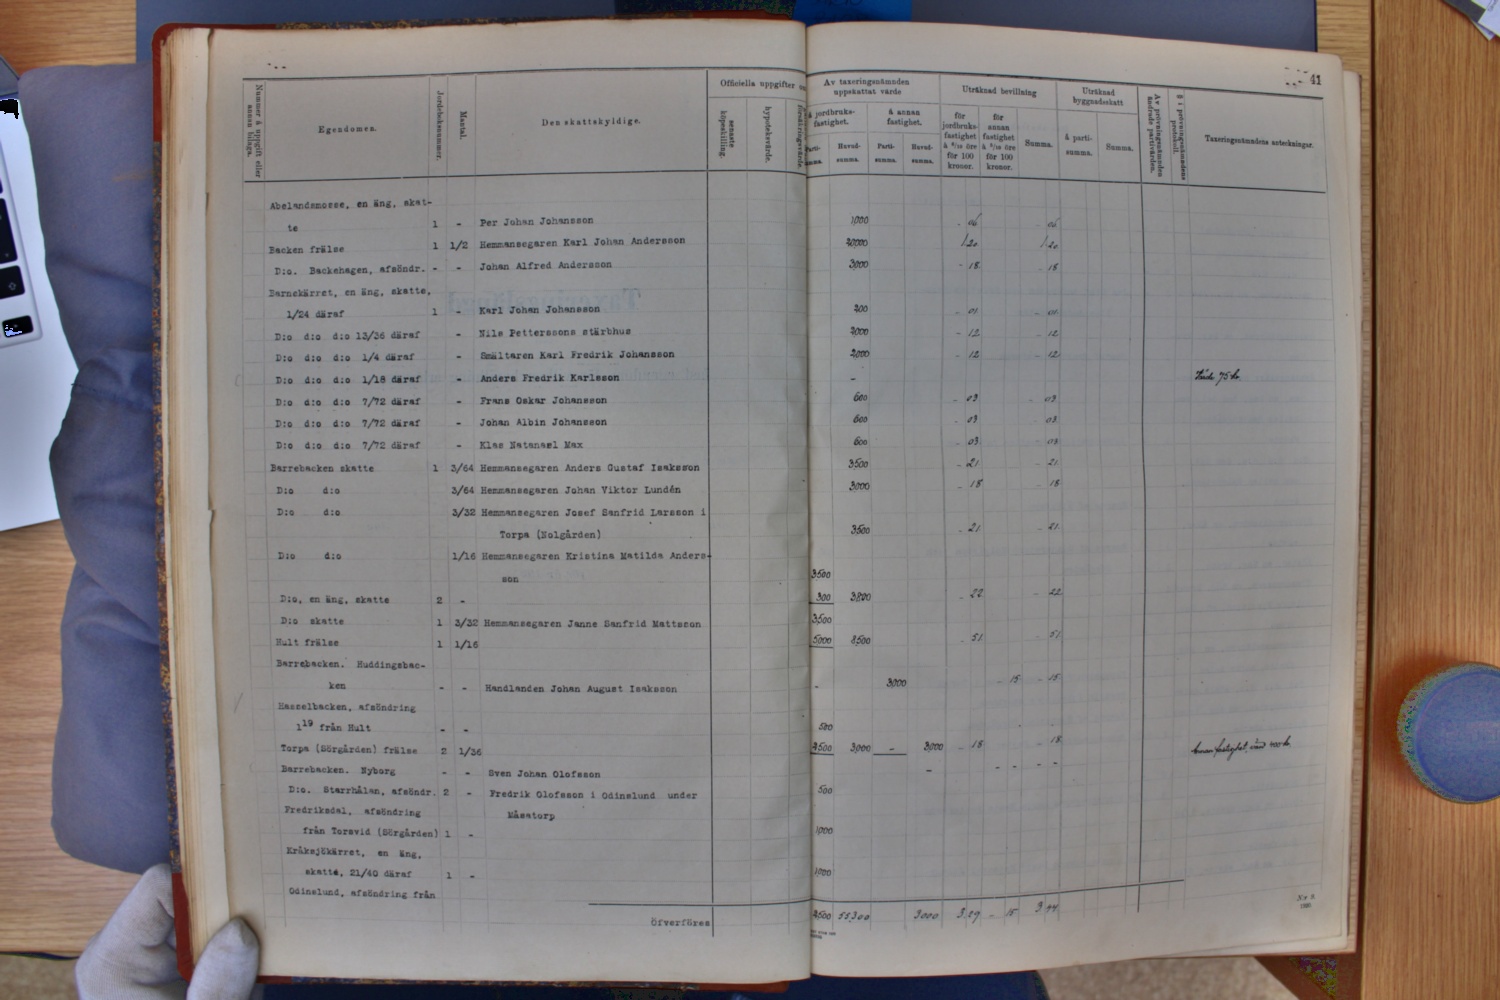 41
Nummer å uppgift eller annan bilaga.
Egendomen.
Jordeboksnummer.
Mantal.
Den skattskyldige.
Officiella uppgifter
senaste köpeskilling.
hypoteksvärde.
Av taxeringsnämnden uppskattat värde
å jordbruksfastighet.
å annan fastighet.
Parti-summa.
Huvud-summa.
Parti-summa.
Huvud-summa.
Uträknad bevillning
för jordbruksfastighet å 6/10 öre för 100 kronor.
för annan fastighet å 5/10 öre för 100 kronor.
Summa.
Uträknad byggnadsskatt
å parti-summa.
Summa.
Av prövningsnämnden ändrade partivärden.
§ i prövningsnämndens protokoll.
Taxeringsnämndens anteckningar.
Abelandsmosse, en äng, skat-
te 1 - Per Johan Johansson 1000 - 06 - 06
Backen frälse 1 1/2 Hemmansegaren Karl Johan Andersson 20000 1 20 1 20
D:o. Backehagen, afsöndr. - - Johan Alfred Andersson 3000 - 18 - 18
Barnekärret, en äng, skatte,
1/24 däraf 1 - Karl Johan Johansson 200 - 01 - 01
D:o d:o d:o 13/36 däraf - Nils Petterssons stärbhus 2000 - 12 - 12
D:o d:o d:o 1/4 däraf - Smältaren Karl Fredrik Johansson 2000 - 12 - 12
D:o d:o d:o 1/18 däraf - Anders Fredrik Karlsson - Värde 75 kr.
D:o d:o d:o 7/72 däraf - Frans Oskar Johansson 600 - 03 - 03
D:o d:o d:o 7/72 däraf - Johan Albin Johansson 600 - 03 - 03
D:o d:o d:o 7/72 däraf - Klas Natanael Max 600 - 03 - 03
Barrebacken skatte 1 3/64 Hemmansegaren Anders Gustaf Isaksson 3500 - 21 - 21
D:o d:o 3/64 Hemmansegaren Johan Viktor Lundén 3000 - 18 - 18
D:o d:o 3/32 Hemmansegaren Josef Sanfrid Larsson i
Torpa (Nolgården) 3500 - 21 - 21
D:o d:o 1/16 Hemmansegaren Kristina Matilda Anders-
son 3500
D:o, en äng, skatte 2 - 300 3800 - 22 - 22
D:o skatte 1 3/32 Hemmansegaren Janne Sanfrid Mattsson 3500
Hult frälse 1 1/16 5000 8500 - 51 - 51
Barrebacken. Huddingsbac-
ken - - Handlanden Johan August Isaksson - 3000 - 15 - 15
Hasselbacken, afsöndring
1¹⁹ från Hult - - 500
Torpa (Sörgården) frälse 2 1/36 2500 3000 - 3000 - 18 - 18 Annan fastighet, värd 400 kr.
Barrebacken. Nyborg - - Sven Johan Olofsson - - - - -
D:o. Starrhålan, afsöndr. 2 - Fredrik Olofsson i Odinslund under 500
Fredriksdal, afsöndring Måsatorp
från Torsvid (Sörgården) 1 - 1000
Kråksjökärret, en äng,
skatte, 21/40 däraf 1 - 1000
Odinslund, afsöndring från
Öfverföres 2500 55300 3000 3 29 - 15 3 44